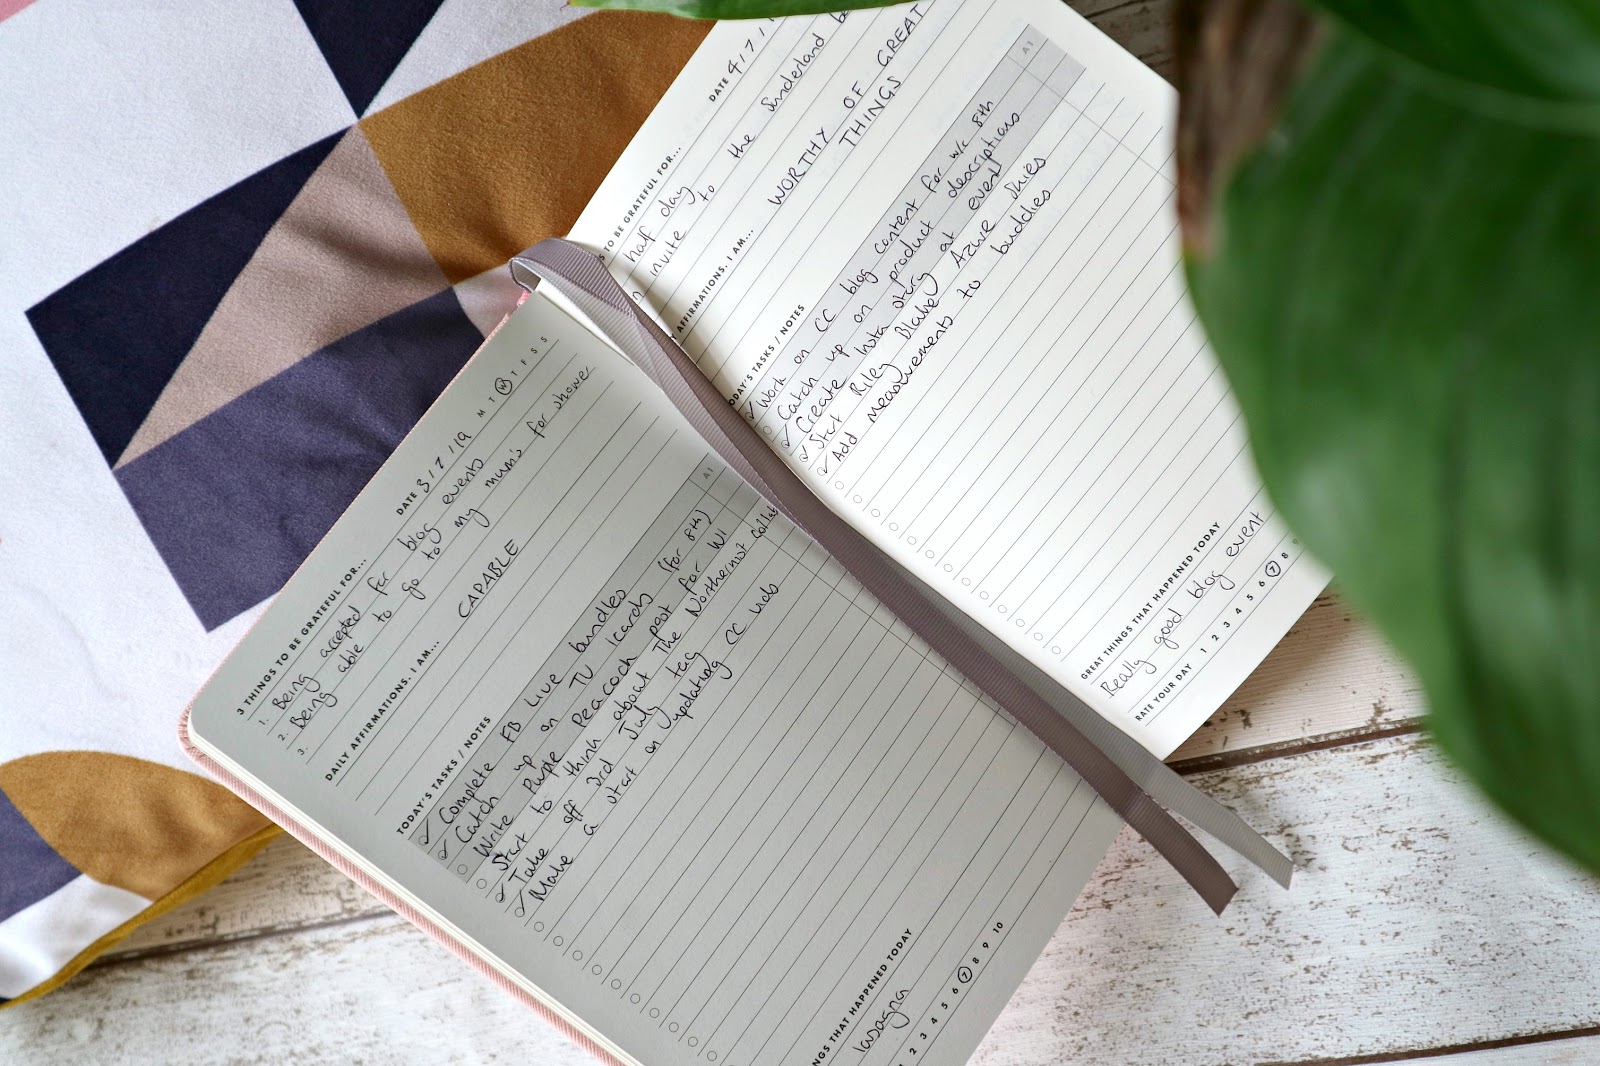 DATE 3/7/19 M T W T F S S
3 THINGS TO BE GRATEFUL FOR...
1. Being accepted for blog events
2. Being able to go to my mum's for shower
3.
DAILY AFFIRMATIONS. I AM...
CAPABLE
TODAY'S TASKS / NOTES A1
Complete FB Live bundles
Catch up on TU Icards (for 8th)
Write Purple Peacock post for WI
Start to think about The Northernist collab
Take off 3rd July tag
Make a start on updating CC vids
NGS THAT HAPPENED TODAY
lasagna
2 3 4 5 6 7 8 9 10
DATE 4/7/1
TO BE GRATEFUL FOR...
half day
invite to the Sunderland
AFFIRMATIONS. I AM...
WORTHY OF GREAT
THINGS
TODAY'S TASKS / NOTES A1
Work on CC blog content for w/c 8th
Catch up on product descriptions
Create Insta story at event
Start Riley Blake Azure Skies
Add measurements to buddies
GREAT THINGS THAT HAPPENED TODAY
Really good blog event
RATE YOUR DAY 1 2 3 4 5 6 7 8